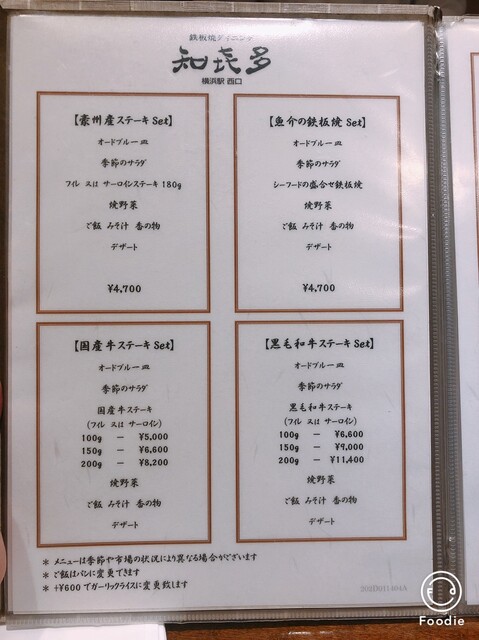 鉄板焼ダイニング
知㐂多
横浜駅 西口
【豪州産ステーキSet】
オードブル一皿
季節のサラダ
フィレ 又は サーロインステーキ 180g
焼野菜
ご飯 みそ汁 香の物
デザート
¥4,700
【魚介の鉄板焼 Set】
オードブル一皿
季節のサラダ
シーフードの盛合せ鉄板焼
焼野菜
ご飯 みそ汁 香の物
デザート
¥4,700
【国産牛ステーキSet】
オードブル一皿
季節のサラダ
国産牛ステーキ
(フィレ 又は サーロイン)
100g — ¥5,000
150g — ¥6,600
200g — ¥8,200
焼野菜
ご飯 みそ汁 香の物
デザート
【黒毛和牛ステーキSet】
オードブル一皿
季節のサラダ
黒毛和牛ステーキ
(フィレ 又は サーロイン)
100g — ¥6,600
150g — ¥9,000
200g — ¥11,400
焼野菜
ご飯 みそ汁 香の物
デザート
* メニューは季節や市場の状況により異なる場合がございます
* ご飯はパンに変更できます
* +¥600でガーリックライスに変更致します
Foodie